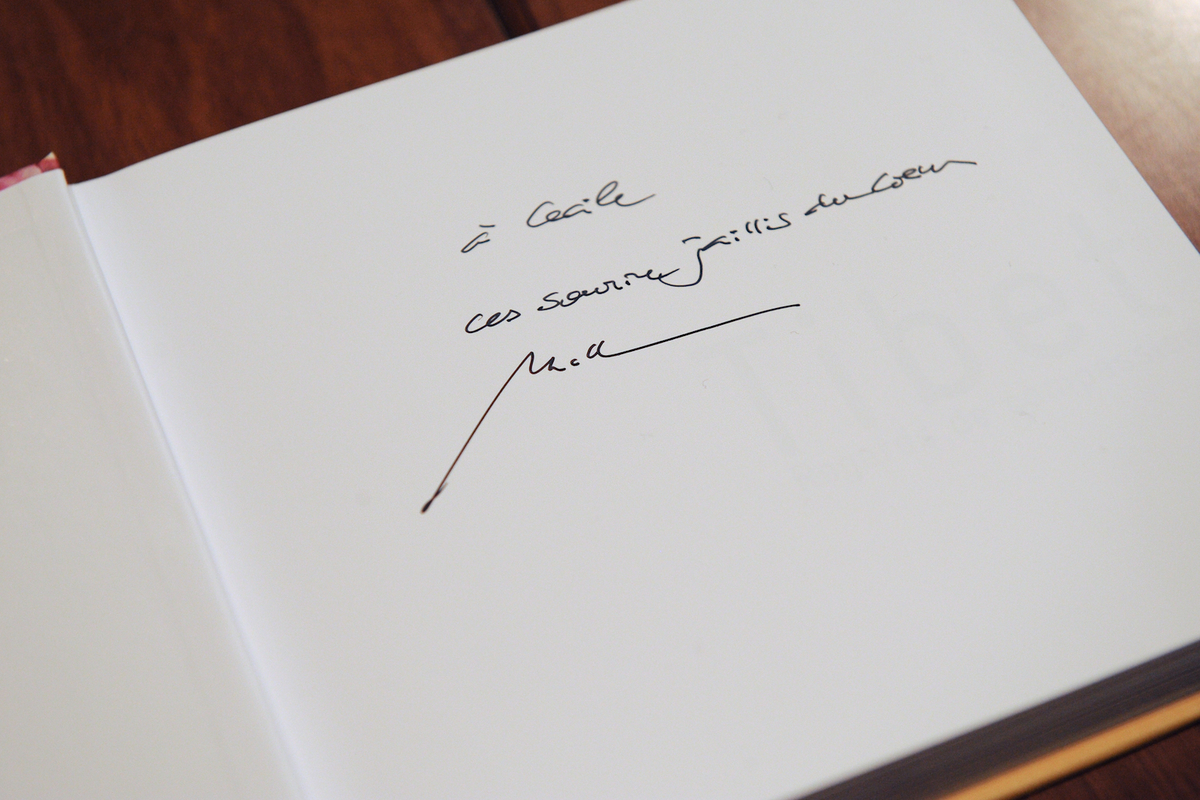 à Cécile
ces sourires jaillis du Coeur